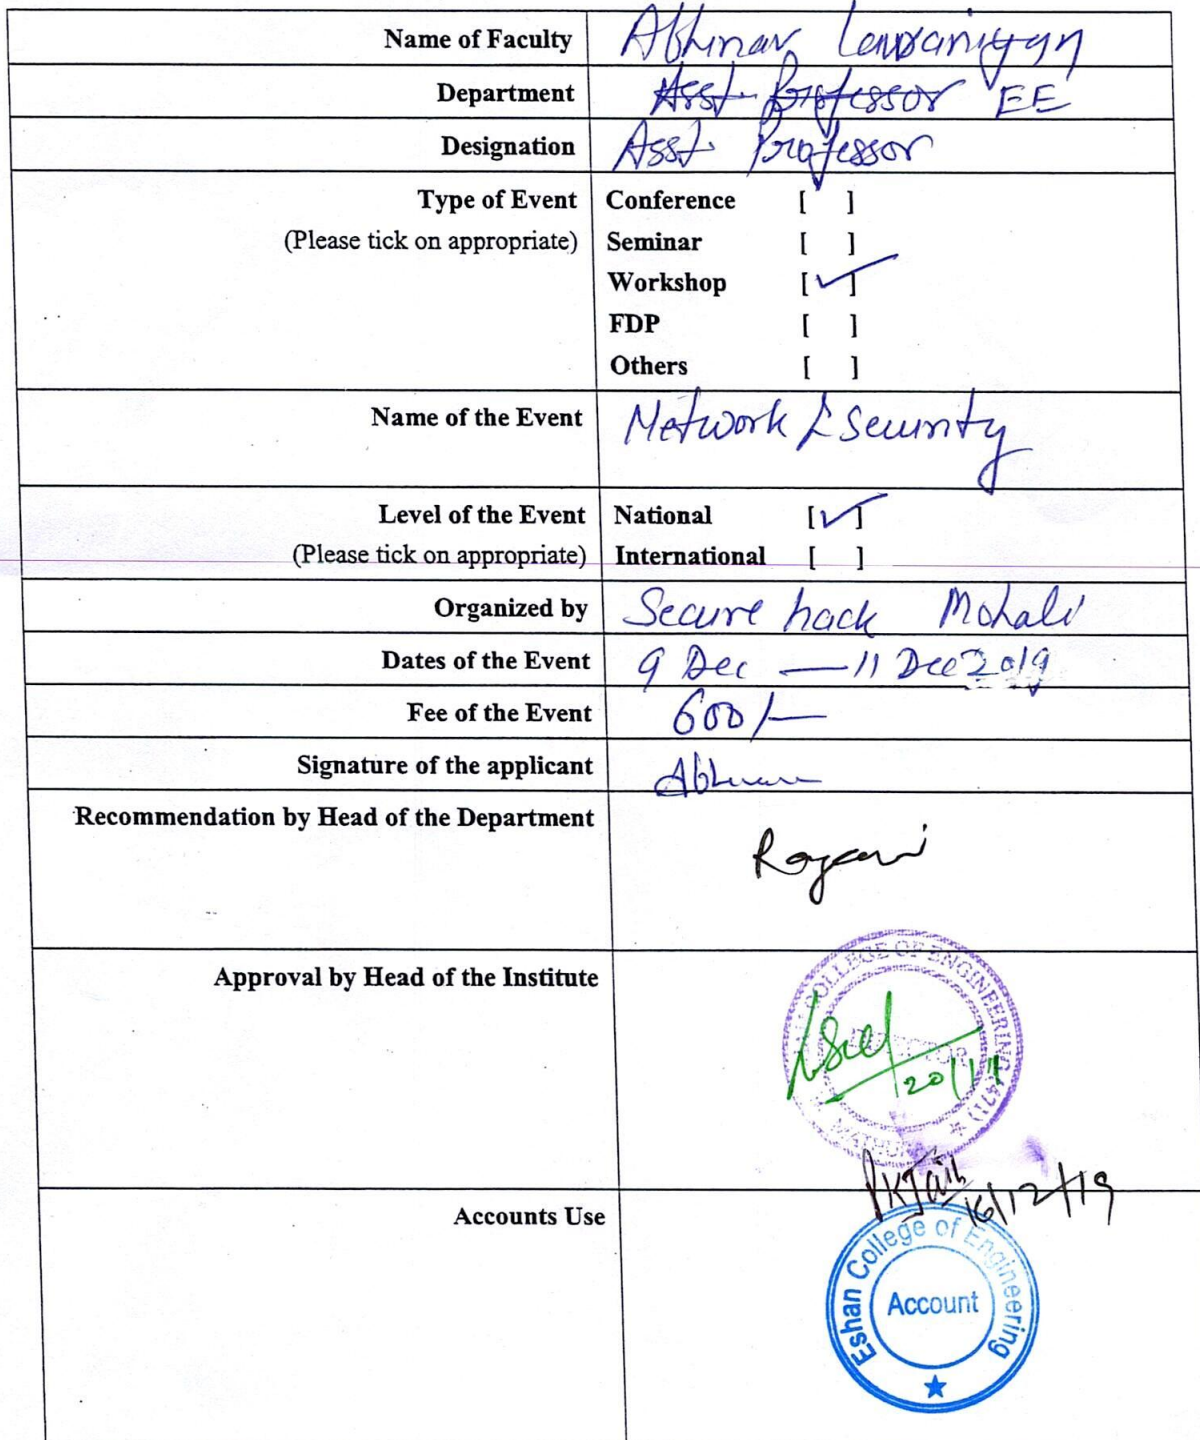 Name of Faculty Abhinav
Department Asst. Professor EE
Designation Asst. Professor
Type of Event Conference [ ]
(Please tick on appropriate) Seminar [ ]
Workshop [✓]
FDP [ ]
Others [ ]
Name of the Event Network & Security
Level of the Event National [✓]
(Please tick on appropriate) International [ ]
Organized by Secure hack Mohali
Dates of the Event 9 Dec — 11 Dec 2019
Fee of the Event 600/-
Signature of the applicant Abhinav
Recommendation by Head of the Department
Approval by Head of the Institute
COLLEGE OF ENGINEERING (471)
MATHURA
20/11
PKJain
16/12/19
Accounts Use
Eshan College of Engineering
Account